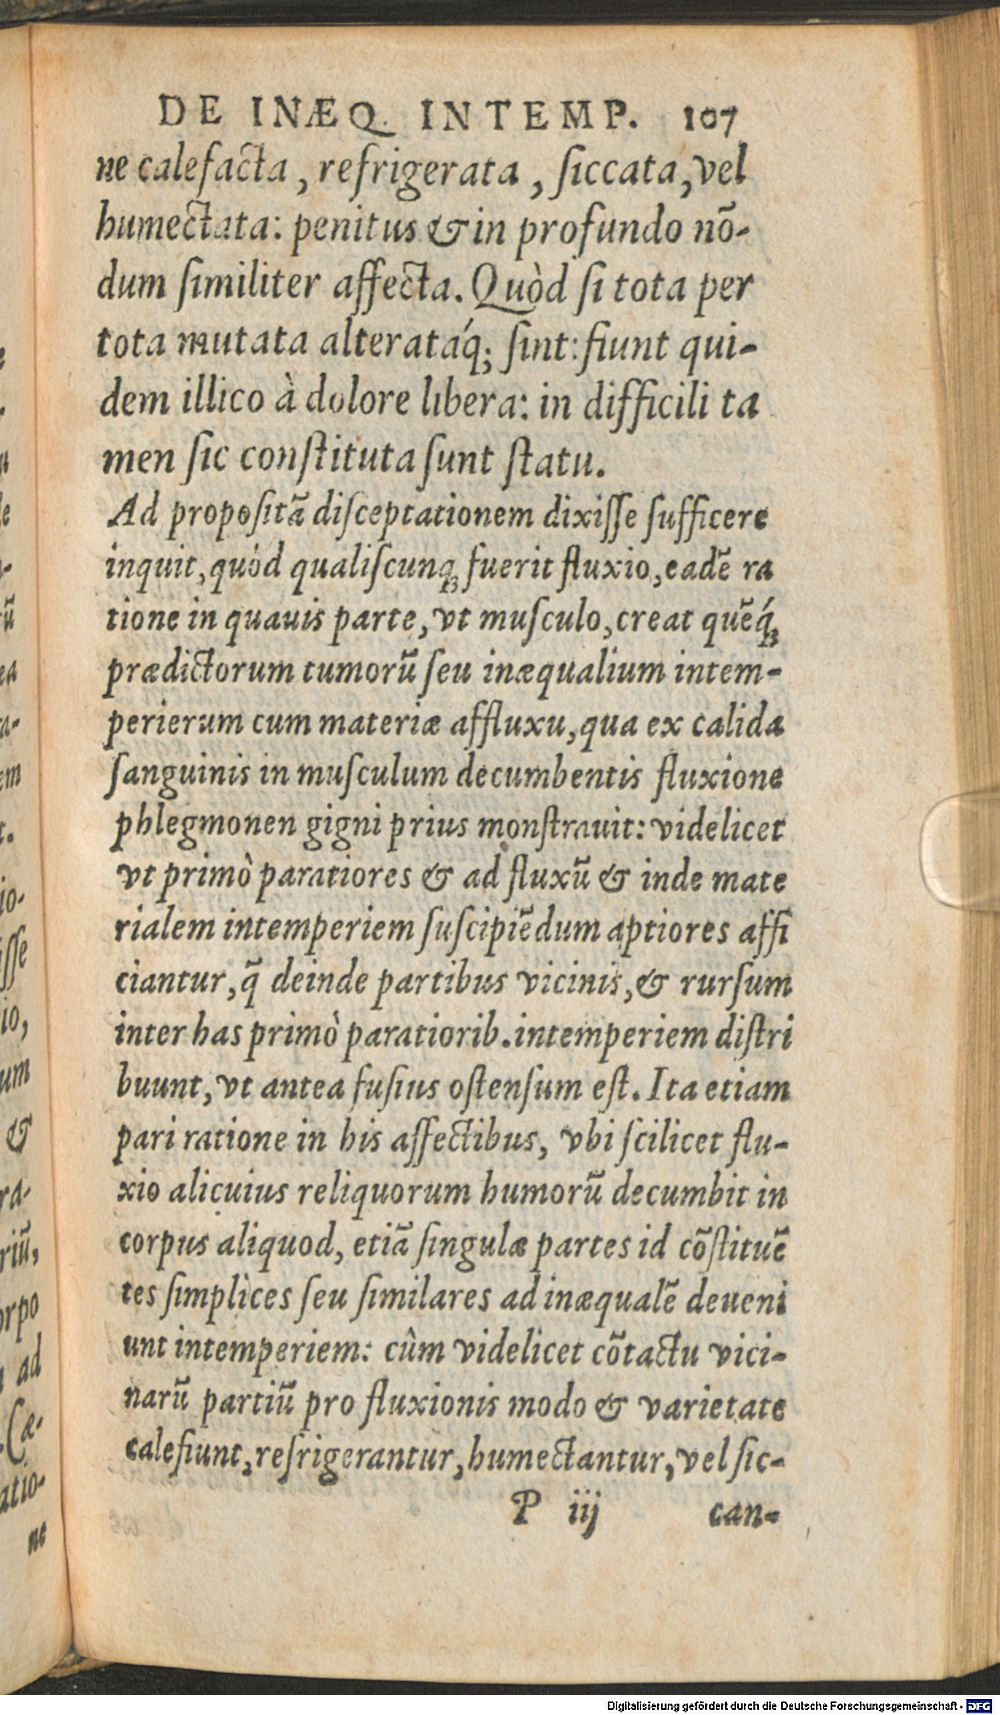 DE INÆQ. INTEMP. 107
ne calefacta, refrigerata, ſiccata, vel
humectata: penitus & in profundo nō-
dum ſimiliter affecta. Quòd ſi tota per
tota mutata alteratáq; ſint: fiunt qui-
dem illico à dolore libera: in difficili ta
men ſic conſtituta ſunt ſtatu.
Ad propoſitā diſceptationem dixiſſe ſufficere
inquit, quòd qualiſcunq; fuerit fluxio, eadē ra
tione in quauis parte, vt muſculo, creat quēq́;
prædictorum tumorū ſeu inæqualium intem-
perierum cum materiæ affluxu, qua ex calida
ſanguinis in muſculum decumbentis fluxione
phlegmonen gigni prius monſtrauit: videlicet
vt primò paratiores & ad fluxū & inde mate
rialem intemperiem ſuſcipiēdum aptiores affi
ciantur, q̃ deinde partibus vicinis, & rurſum
inter has primò paratiorib. intemperiem diſtri
buunt, vt antea fuſius oſtenſum eſt. Ita etiam
pari ratione in his affectibus, vbi ſcilicet flu-
xio alicuius reliquorum humorū decumbit in
corpus aliquod, etiā ſingulæ partes id cōſtituē
tes ſimplices ſeu ſimilares ad inæqualē deueni
unt intemperiem: cûm videlicet cōtactu vici-
narū partiū pro fluxionis modo & varietate
calefiunt, refrigerantur, humectantur, vel ſic-
P iij can-
Digitalisierung gefördert durch die Deutsche Forschungsgemeinschaft - DFG